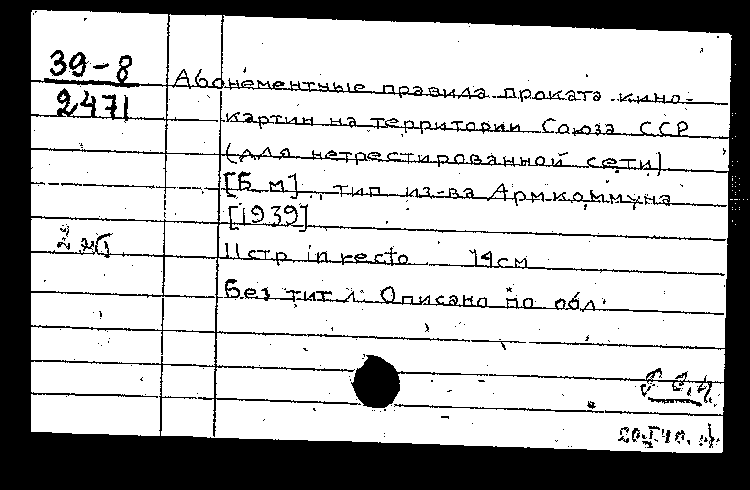 39-8
2471
Абонементные правила проката кино-
картин на территории Союза ССР
(для нетрестированной сети)
[Б м], тип из-ва Армкоммуна
[1939]
2 мб
11 стр in recto 14 см
Без тит л. Описано по обл.
20.I 40.